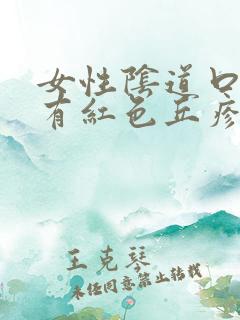 女性陰道口
有紅色丘疹
王克琴
未任同意禁止转载